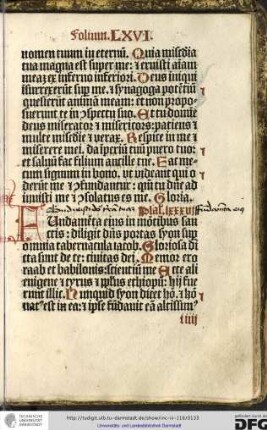 Folium. LXVI.
nomen tuum in eternū. Quia misc̄dia
tua magna est super me: ⁊ eruisti aīam
meaȝ ex inferno inferiori. Deus iniqui
insurrexerūt sup me. ⁊ synagoga potētiū
quesierūt animā meam: et non propo-
suerunt te in ꝯspectu suo. Et tu domīe
deus miserator ⁊ misericors: patiens ⁊
multe misc̄die ⁊ verax. Respice in me ⁊
miserere mei. da īperiū tuū puero tuo:
et saluū fac filium ancille tue. Fac me-
cum signum in bono. vt videant qui o-
derūt me ⁊ ꝯfundantur: qm̄ tu dn̄e ad
iuuisti me ⁊ ꝯsolatus es me. Gloria.
Psal. LXXXVI
Fundamēta eius in mōtibus san
ctis: diligit dn̄s portas syon sup
omnia tabernacula iacob. Gloriosa di
cta sunt de te: ciuitas dei. Memor ero
raab et babilonis: scientiū me. Ecce ali
enigene ⁊ tyrus ⁊ ipl̄us ethiopū: hij fue
runt illic. Nunquid syon dicet hō. ⁊ hō
nat⁹ est in ea: ⁊ ipse fūdauit eā altissim⁹
iiij
http://tudigit.ulb.tu-darmstadt.de/show/inc-iii-118/0133
Universitäts- und Landesbibliothek Darmstadt
TECHNISCHE UNIVERSITÄT DARMSTADT
DFG